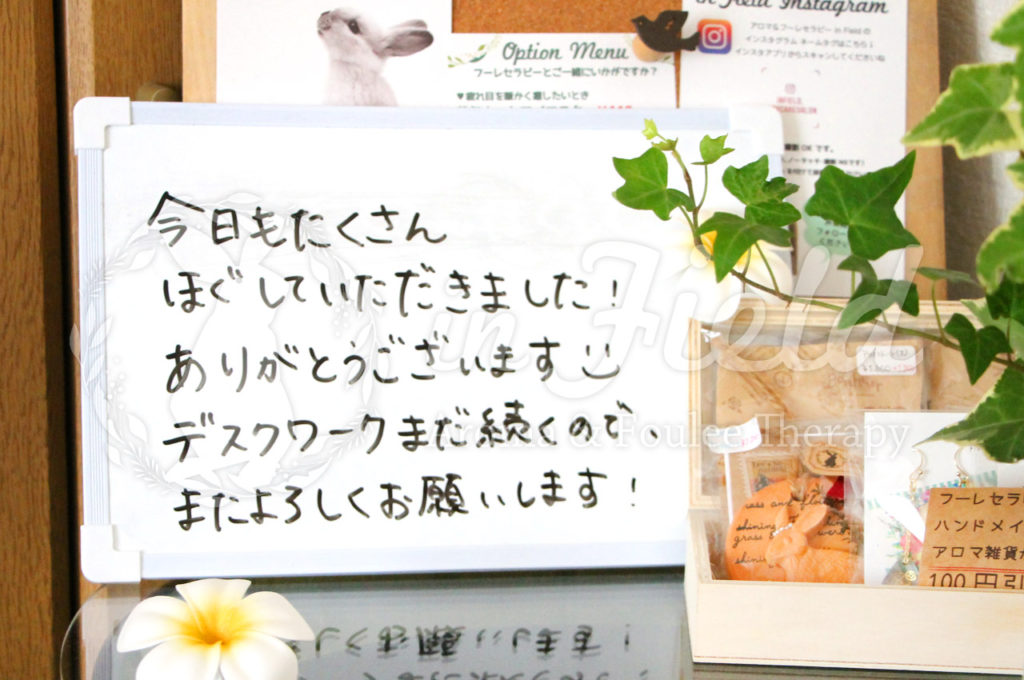 in Field Instagram
アロマ&フーレセラピー in Field の
インスタグラム ネームタグはこちら↓
インスタアプリからスキャンしてくださいね
Option Menu
フーレセラピーとご一緒にいかがですか?
♥疲れ目を暖かく癒したいとき
今日もたくさん
ほぐしていただきました!
ありがとうございます
デスクワークまだ続くので、
またよろしくお願いします!
in Field
Aroma & Foulee Therapy
フーレセラ
ハンドメイ
アロマ雑貨
100円引